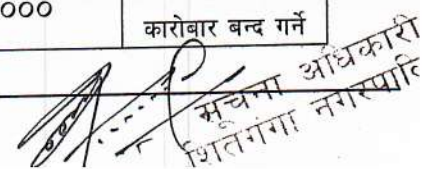 000
कारोबार बन्द गर्ने
सूचना अधिकारी
शितगंगा नगरपालि